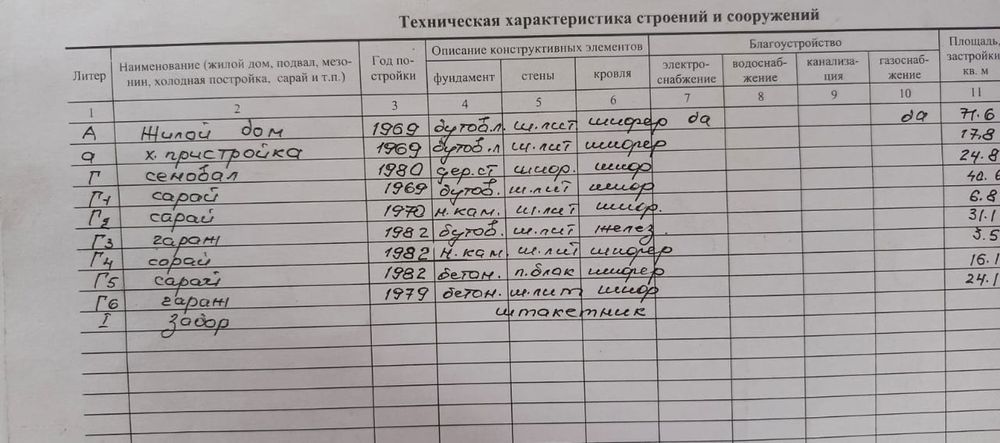 Техническая характеристика строений и сооружений
Литер Наименование (жилой дом, подвал, мезонин, холодная постройка, сарай и т.п.) Год постройки Описание конструктивных элементов Благоустройство Площадь, застройки кв. м
фундамент стены кровля электроснабжение водоснабжение канализация газоснабжение
1 2 3 4 5 6 7 8 9 10 11
А Жилой дом 1969 бутов.л ш.лит шифер да да 71.6
а х. пристройка 1969 бутов.л ш.лит шифер 17.8
Г сеновал 1980 дер.ст шифр. шифр 24.8
Г1 сарай 1969 бутов. ш.лит шифр 40.6
Г2 сарай 1970 н.кам. ш.лит шифр. 6.8
Г3 гараж 1982 бутов. ш.лит желез. 31.1
Г4 сарай 1982 н.кам. ш.лит шифер 5.5
Г5 сарай 1982 бетон. п.блак шифер 16.1
Г6 гараж 1979 бетон. ш.лит шифр 24.1
I Забор штакетник